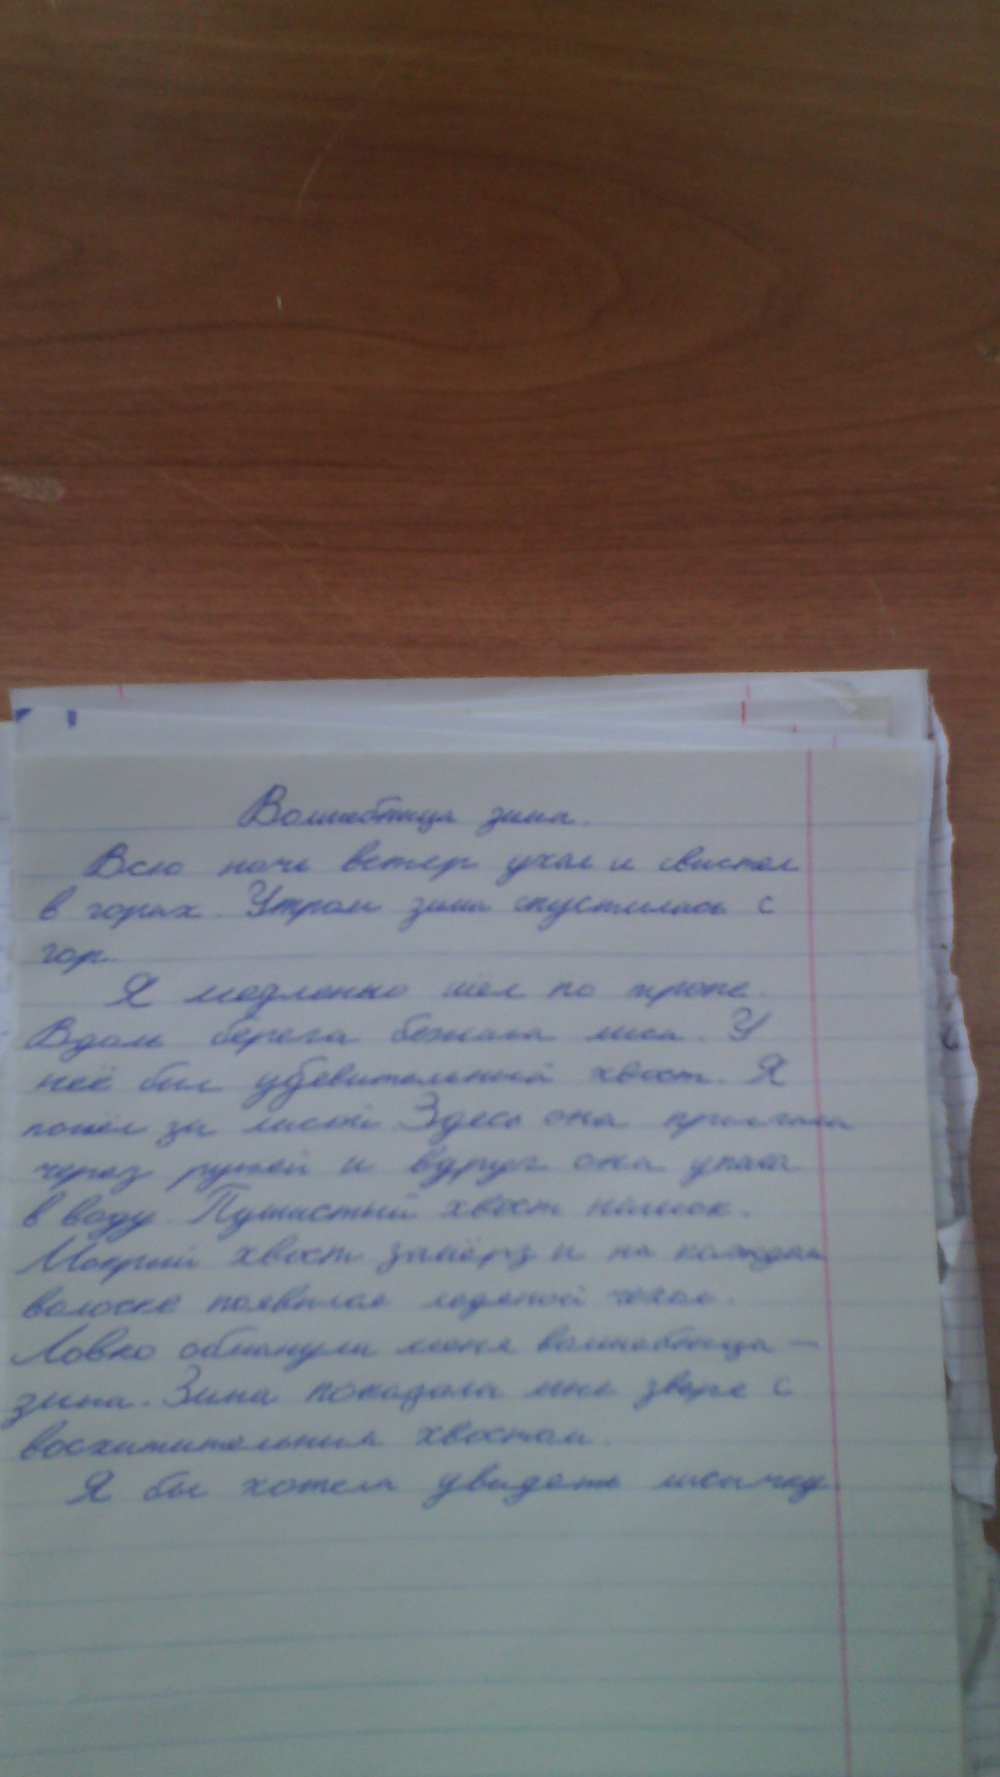 Волшебница зима.
Всю ночь ветер ухал и свистел
в горах. Утром зима спустилась с
гор.
Я медленно шёл по тропе.
Вдоль берега бежала лиса. У
неё был удевительный хвост. Я
пошёл за лисой. Здесь она прыгала
через ручей и вдруг она упала
в воду. Пушистый хвост намок.
Мокрый хвост замёрз и на каждом
волоске появился ледяной чехол.
Ловко обманула меня волшебница —
зима. Зима показала мне зверя с
восхитительным хвостом.
Я бы хотела увидеть лисичку